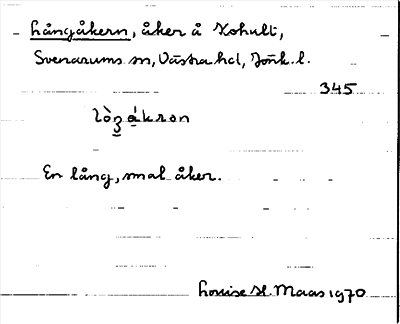 Långåkern, åker å Kohult,
Svenarums sn, Västra hd, Jönk. l.
345
En lång, smal åker.
Louise H. Maas 1970